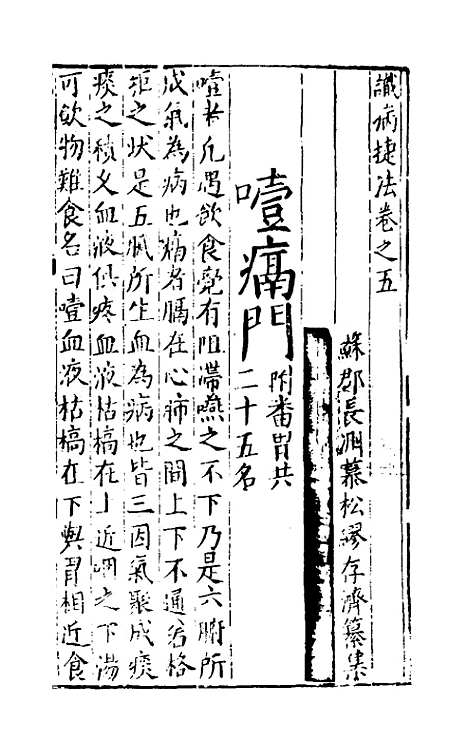 識病捷法卷之五
蘇郡長洲慕松繆存濟纂集
噎膈門
附番胃共
二十五名
噎者凡遇飲食毫有阻滯嚥之不下乃是六腑所
成氣為病也膈者膈在心肺之間上下不通若格
拒之狀是五臟所生血為病也皆三因氣聚成痰
痰之積久血液俱疼血液枯槁在上近咽之下湯
可飲物難食名曰噎血液枯槁在下與胃相近食